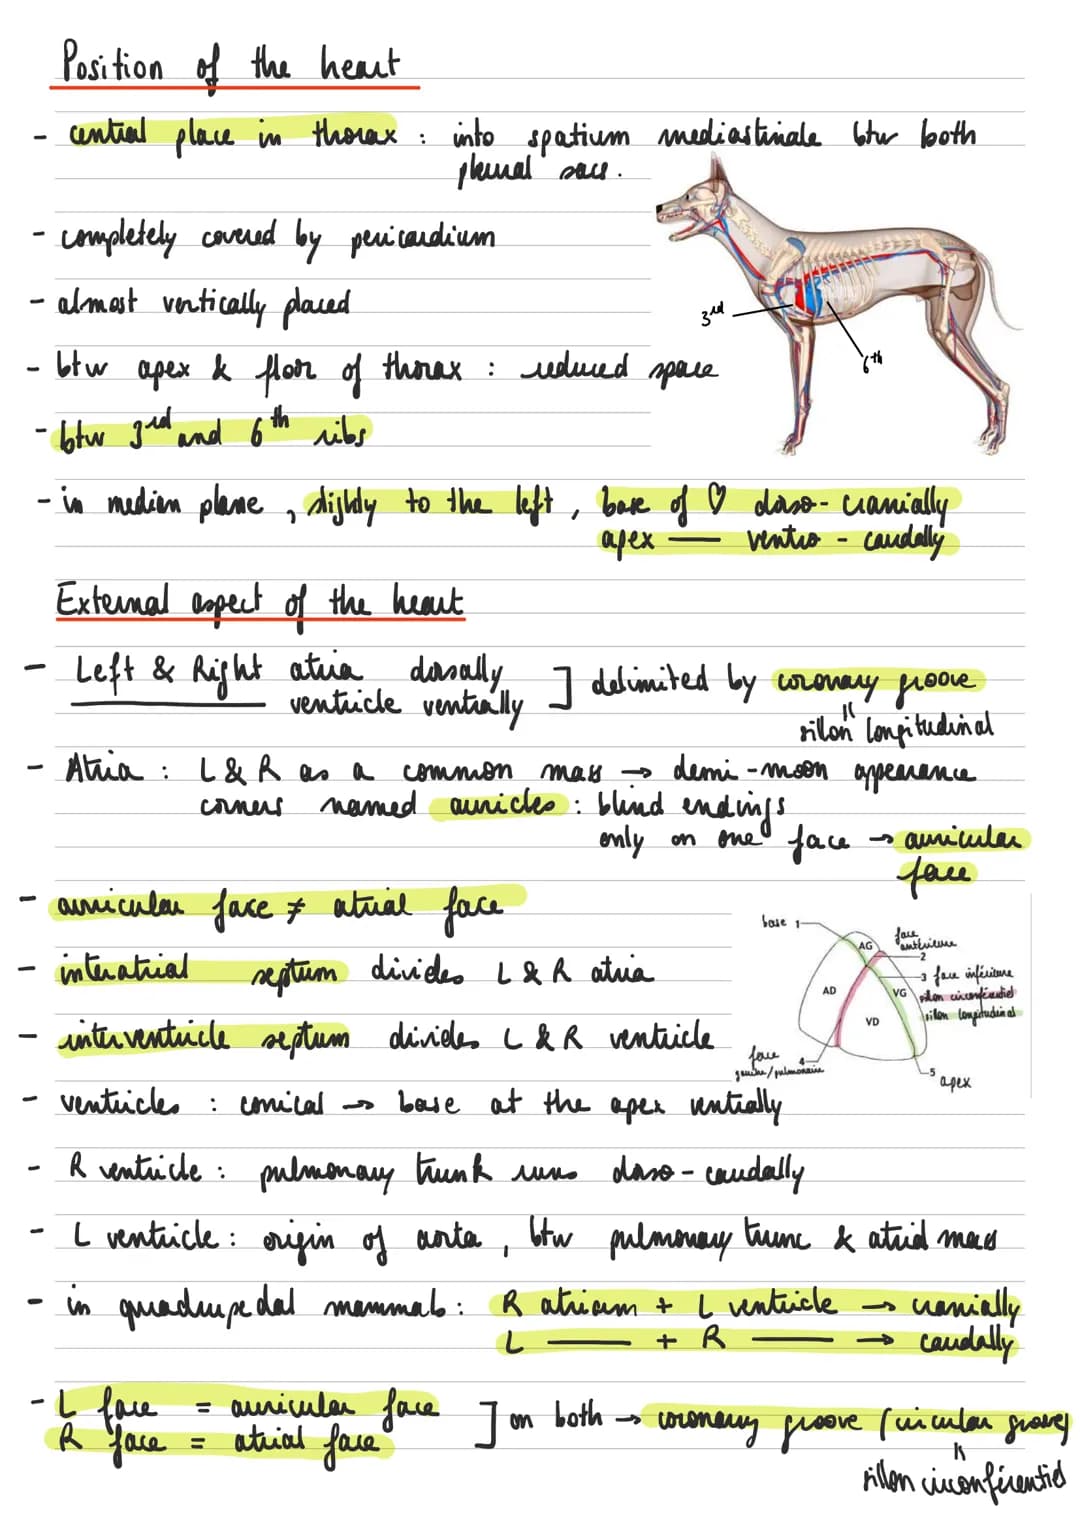 Position of the heart
- central place in thorax : into spatium mediastinale btw both
pleural sacs.
- completely covered by pericardium
- almost vertically placed
3rd
6th
- btw apex & floor of thorax : reduced space
- btw 3rd and 6th ribs
- in median plane, slighly to the left, base of ♡ dorso-cranially
apex — ventro - caudally
External aspect of the heart
- Left & Right atria dorsally
ventricle ventrally ] delimited by coronary groove
=
sillon longitudinal
- Atria : L & R as a common mass → demi-moon appearance
corners named auricles : blind endings
only on one face → auricular
face
- auricular face ≠ atrial face
- interatrial septum divides L & R atria
- interventricle septum divides L & R ventricle
base 1
AG
face antérieure
2
3 face inférieure
AD
VG
sillon circonférentiel
sillon longitudinal
VD
face
gauche/pulmonaire
4
5
apex
- ventricles : conical → base at the apex ventrally
- R ventricle : pulmonary trunk runs dorso-caudally
- L ventricle : origin of aorta, btw pulmonary trunc & atrial mass
- in quadrupedal mammals : R atrium + L ventricle → cranially
L — + R — → caudally
- L face = auricular face
R face = atrial face ] on both → coronary groove (circular groove)
=
sillon circonférentiel